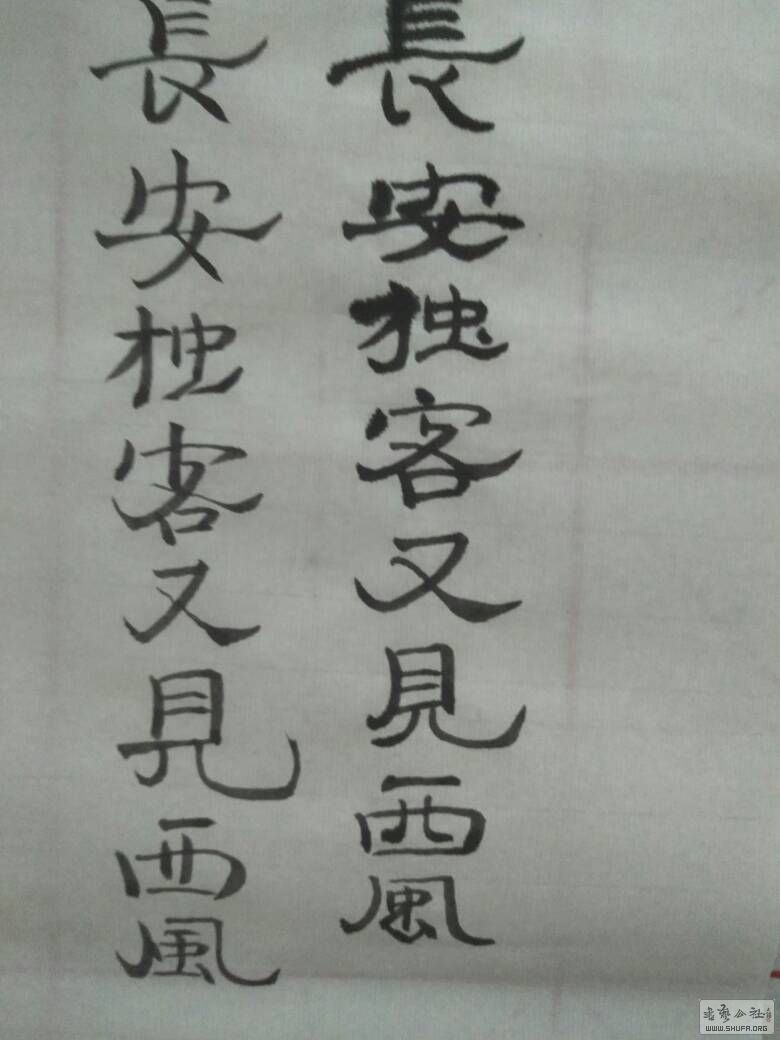 長安独客又見西風
長安独客又見西風
書藝公社
WWW.SHUFA.ORG